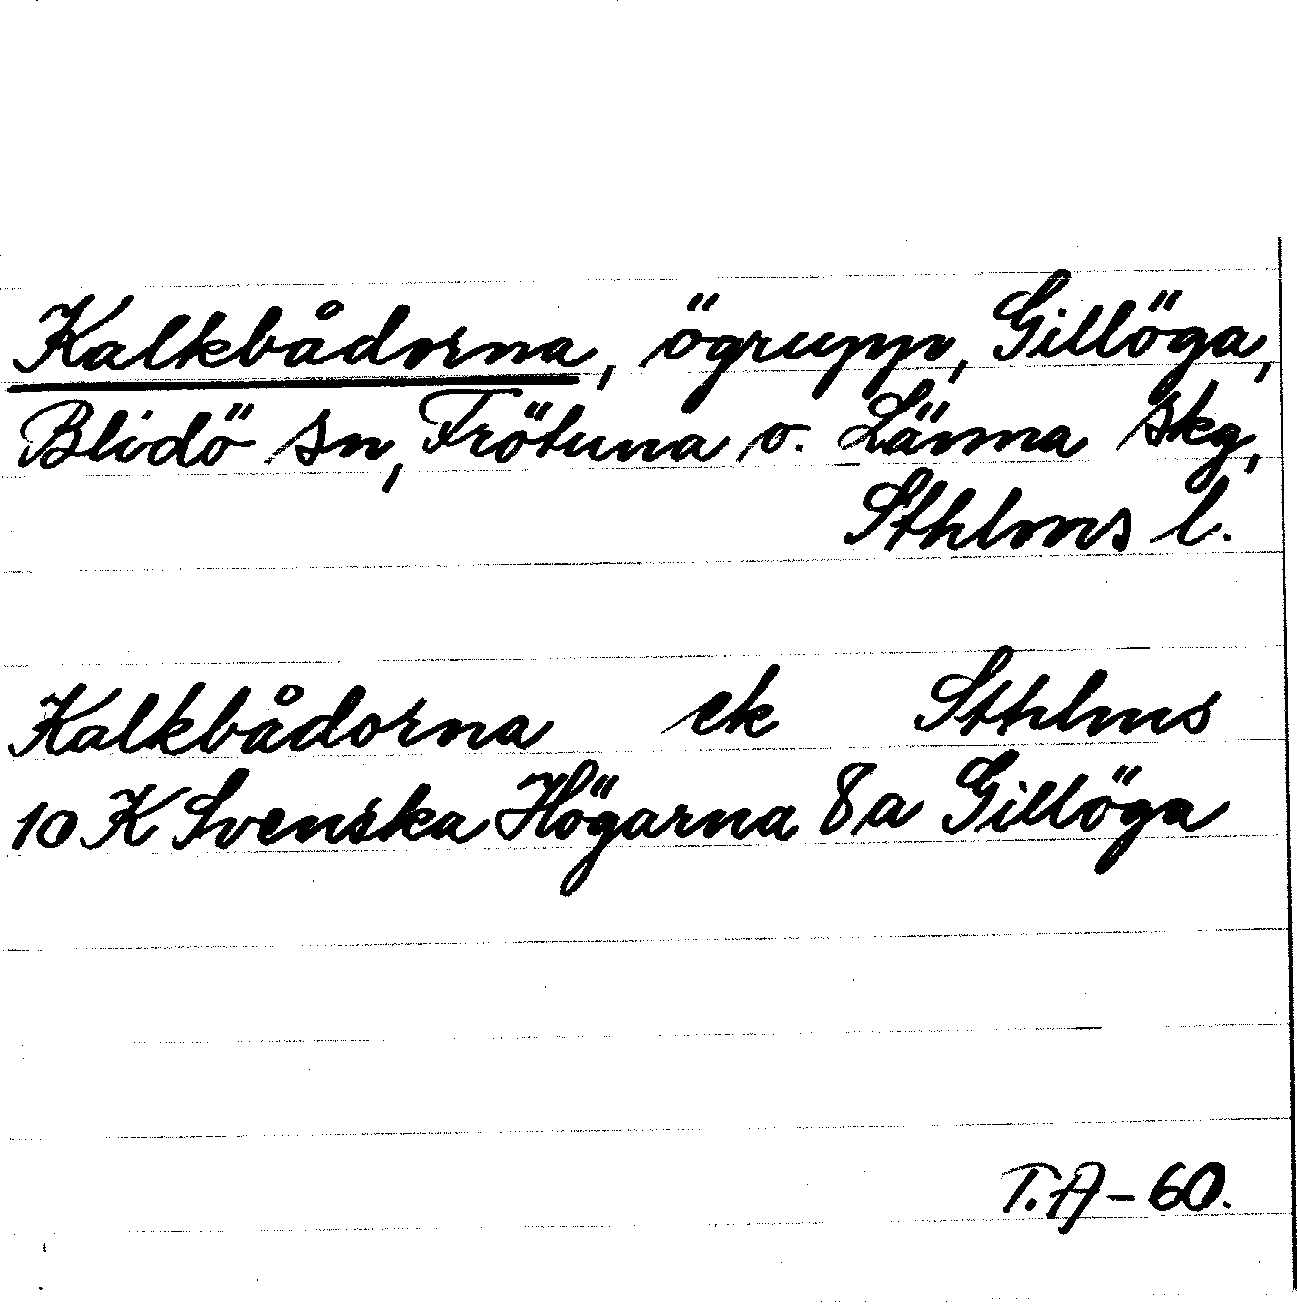 Kalkbådorna, ögrupp, Gillöga,
Blidö sn, Frötuna o. Länna skg,
Sthlms l.
Kalkbådorna ek Sthlms
10 K Svenska Högarna 8a Gillöga
T.A-60.